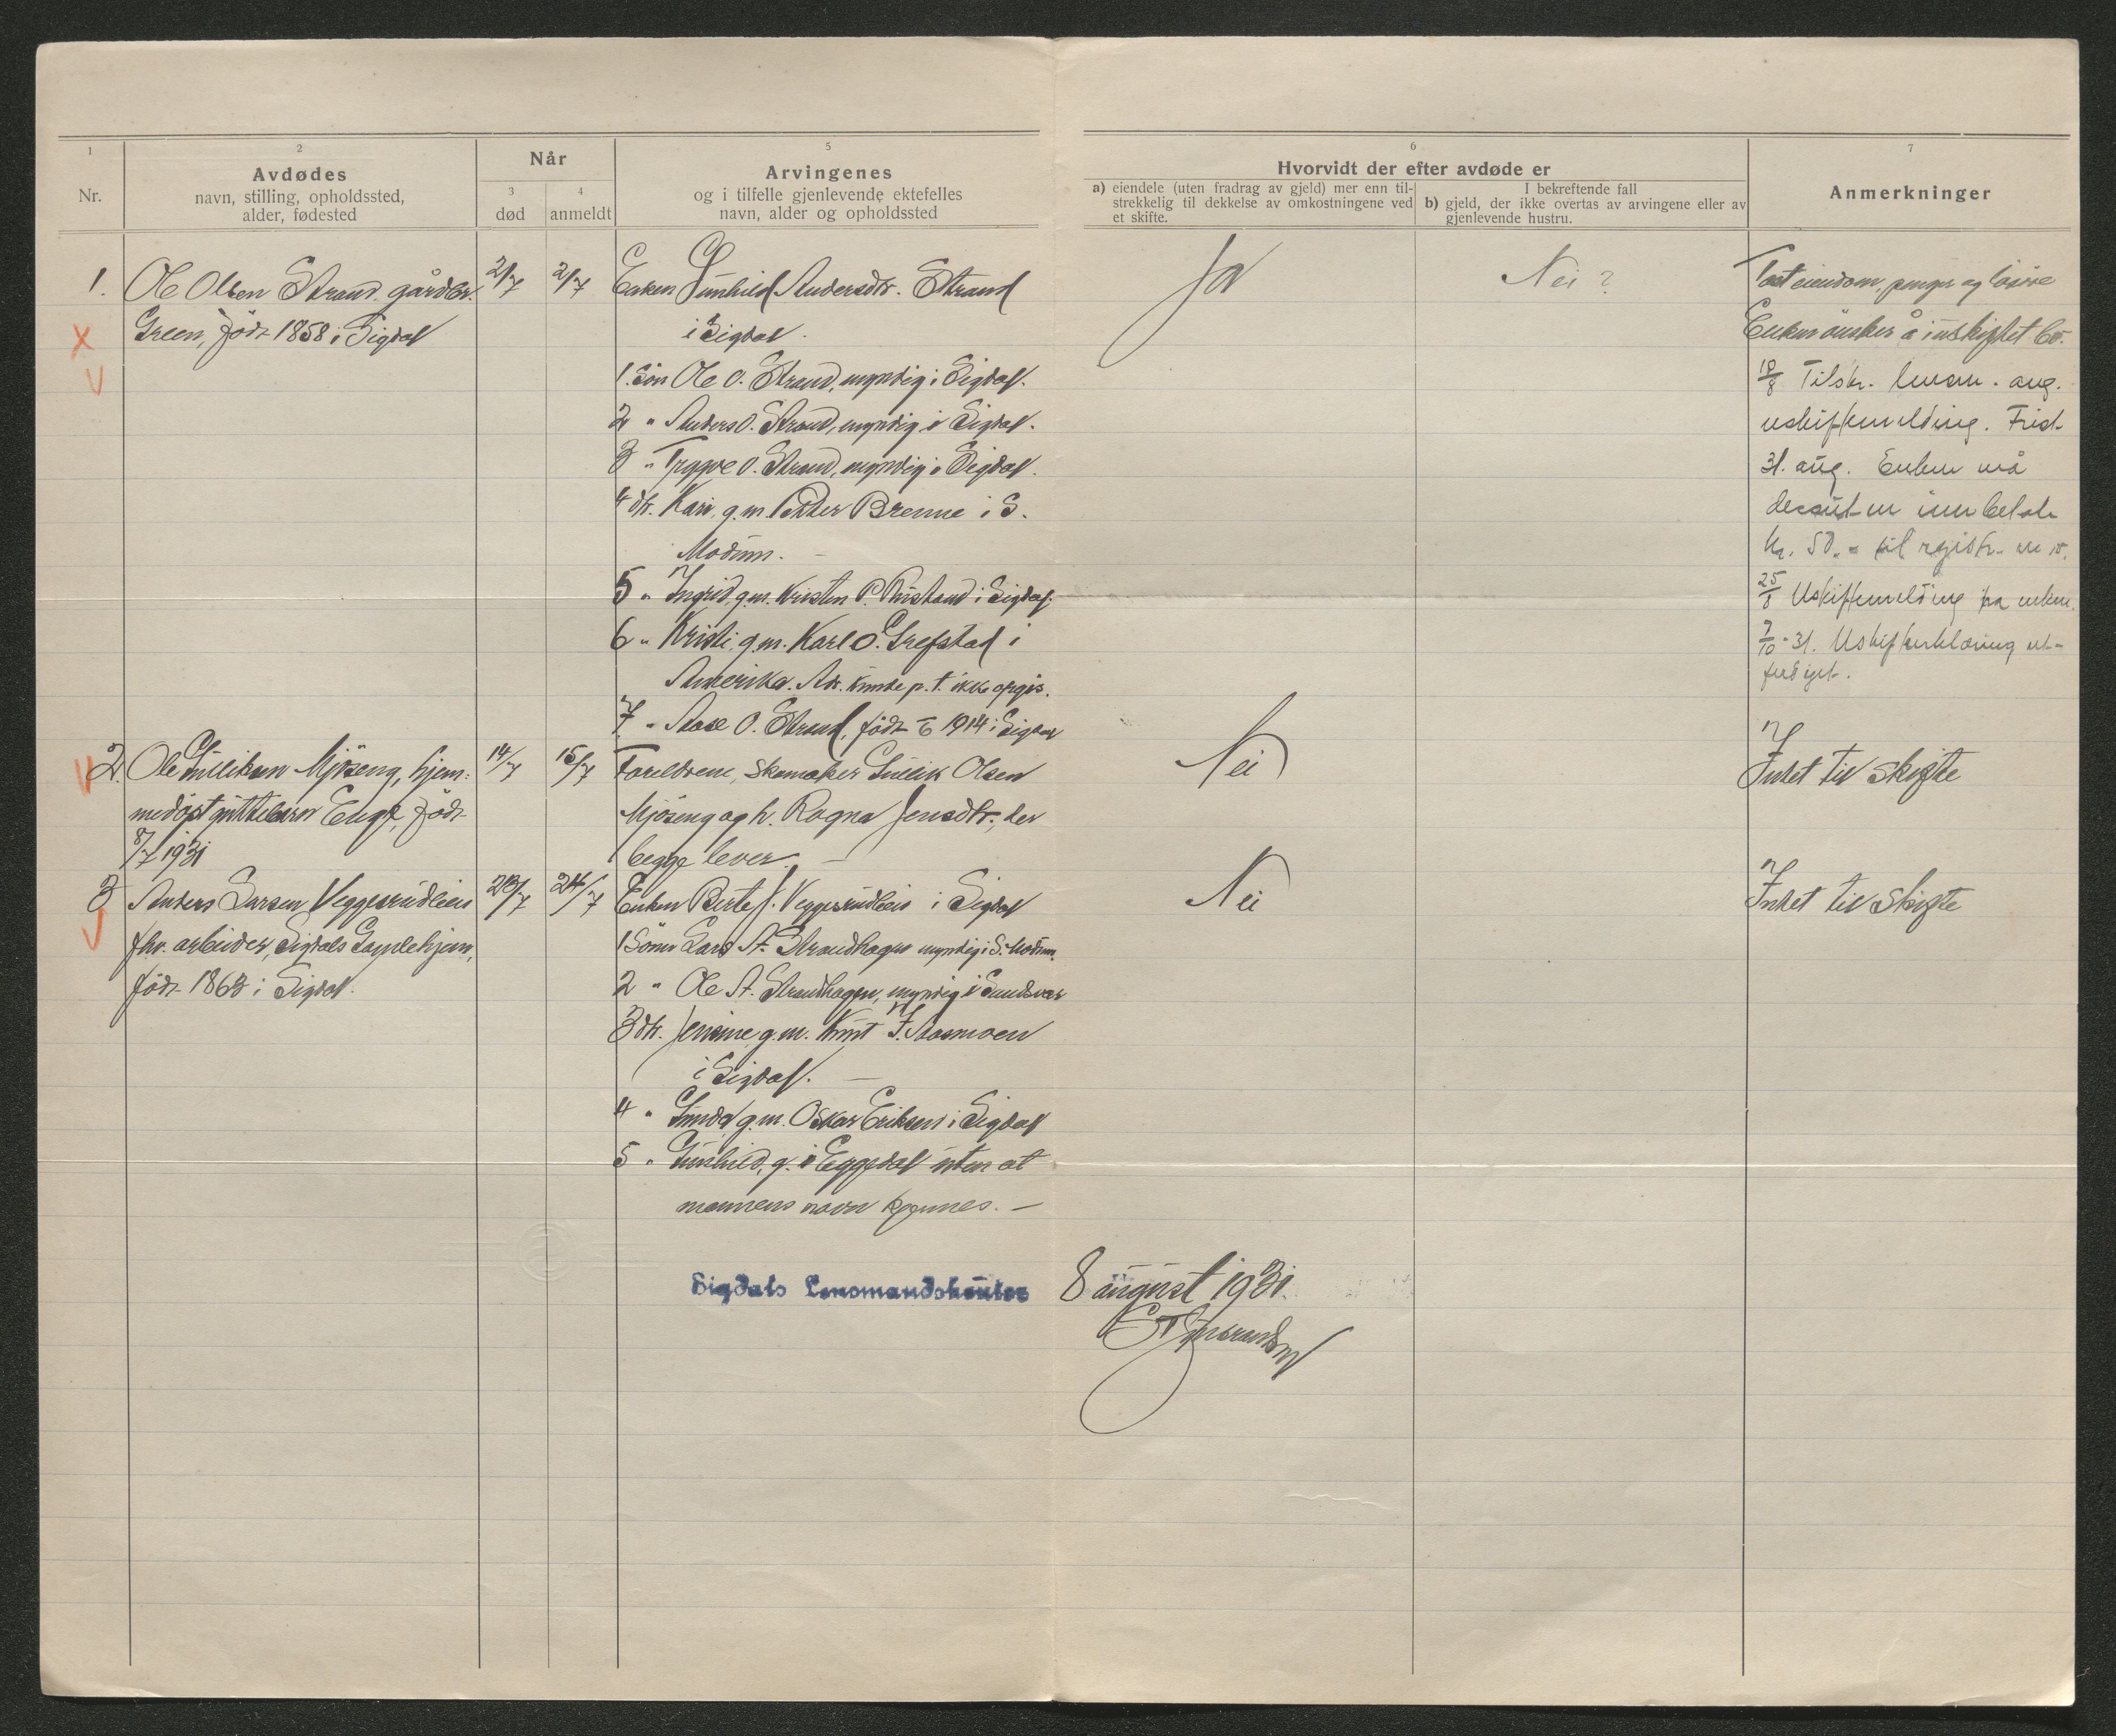 1
2
Avdødes
navn, stilling, opholdssted,
alder, fødested
Nr.
Når
3
død
4
anmeldt
5
Arvingenes
og i tilfelle gjenlevende ektefelles
navn, alder og opholdssted
6
Hvorvidt der efter avdøde er
a) eiendele (uten fradrag av gjeld) mer enn til-
strekkelig til dekkelse av omkostningene ved
et skifte.
I bekreftende fall
b) gjeld, der ikke overtas av arvingene eller av
gjenlevende hustru.
7
Anmerkninger
1. Ole Olsen Strand, gårdbr.
Green, född 1858 i Sigdal
2/7 2/7
Enken Gunhild Andersdtr. Strand
i Sigdal.
1. Sön Ole O. Strand, myndig i Sigdal.
2 " Anders O. Strand, myndig i Sigdal.
3 " Trygve O. Strand, myndig i Sigdal.
4 dtr. Kari, g.m. Petter Brenne i S.
Modum. —
5 " Ingrid, g.m. Kristen P. Rustand i Sigdal.
6 " Kristi, g.m. Karl O. Grefstad i
Amerika. Adr. kunde p.t. ikke opgis.
7 " Aase O. Strand, född 1/6 1914 i Sigdal
Ja
Nei ?
Fast eiendom, penger og lösöre
Enken önsker å i uskiftet bo.
10/8 Tilskr. lensm. ang.
uskiftemelding. Frist
31. aug. Enken må
dessuten innbetale
kr. 50.- til registr. m.v.
25/8 Uskiftemelding fra enken.
7/10-31. Uskifteerklæring ut-
ferdiget.
2. Ole Gullikson Mjöseng, hjem-
medöpt guttebarn Enge, född
8/7 1931
14/7 15/7
Foreldrene, skomaker Gullik Olsen
Mjöseng og h. Ragna Jensdtr., der
begge lever. —
Nei
Intet til skifte
3 Anders Larsen Veggesrudleie
fhv. arbeider, Sigdals Gamlehjem,
född 1863 i Sigdal.
23/7 24/7
Enken Berte J. Veggesrudleie i Sigdal
1 Sönn Lars A. Strandhagen myndig i S. Modum.
2 " Ole A. Strandhagen, myndig i Sandsvær
3 dtr. Jensine g.m. Knut J. Aasmoen
i Sigdal. —
4 " Gunda g.m. Oskar Eriksen i Sigdal
5 " Gunhild, g. i Eggedal uten at
mannens navn kjennes. —
Nei
Intet til Skifte
Sigdals Lensmandskontor 8 august 1931.